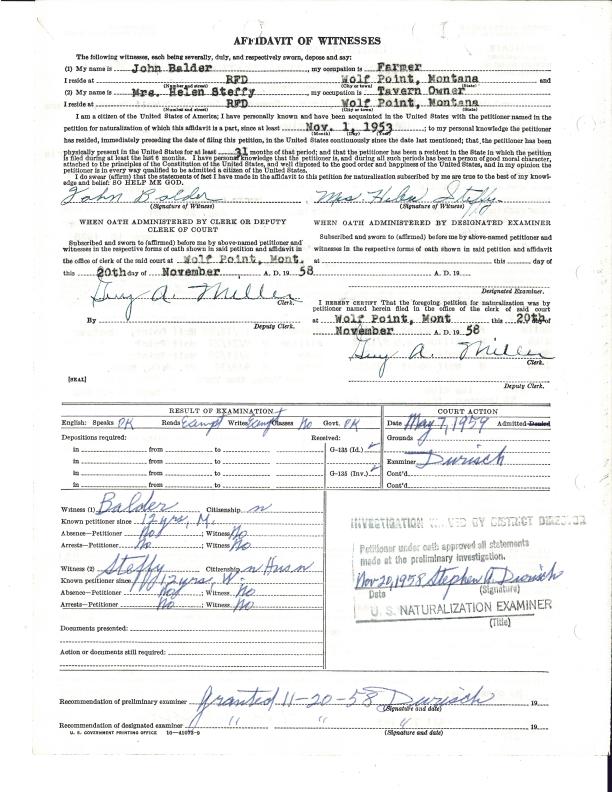 AFFIDAVIT OF WITNESSES
The following witnesses, each being severally, duly, and respectively sworn, depose and say:
(1) My name is John Balder, my occupation is Farmer
I reside at RFD Wolf Point, Montana and
(Number and street) (City or town) (State)
(2) My name is Mrs. Helen Steffy, my occupation is Tavern Owner
I reside at RFD Wolf Point, Montana
(Number and street) (City or town) (State)
I am a citizen of the United States of America; I have personally known and have been acquainted in the United States with the petitioner named in the
petition for naturalization of which this affidavit is a part, since at least Nov. 1, 1953; to my personal knowledge the petitioner
(Month) (Day) (Year)
has resided, immediately preceding the date of filing this petition, in the United States continuously since the date last mentioned; that the petitioner has been
physically present in the United States for at least 31 months of that period; and that the petitioner has been a resident in the State in which the petition
is filed during at least the last 6 months. I have personal knowledge that the petitioner is, and during all such periods has been a person of good moral character,
attached to the principles of the Constitution of the United States, and well disposed to the good order and happiness of the United States, and in my opinion the
petitioner is in every way qualified to be admitted a citizen of the United States.
I do swear (affirm) that the statements of fact I have made in the affidavit to this petition for naturalization subscribed by me are true to the best of my knowl-
edge and belief: SO HELP ME GOD.
John Balder Mrs. Helen Steffy
(Signature of Witness) (Signature of Witness)
WHEN OATH ADMINISTERED BY CLERK OR DEPUTY
CLERK OF COURT
Subscribed and sworn to (affirmed) before me by above-named petitioner and
witnesses in the respective forms of oath shown in said petition and affidavit in
the office of clerk of the said court at Wolf Point, Mont.
this 20th day of November A. D. 19 58
Guy A. Miller
Clerk.
By
Deputy Clerk.
[SEAL]
WHEN OATH ADMINISTERED BY DESIGNATED EXAMINER
Subscribed and sworn to (affirmed) before me by above-named petitioner and
witnesses in the respective forms of oath shown in said petition and affidavit
at this day of
A. D. 19
Designated Examiner.
I HEREBY CERTIFY That the foregoing petition for naturalization was by
petitioner named herein filed in the office of the clerk of said court
at Wolf Point, Mont this 20th day of
November A. D. 19 58
Guy A. Miller
Clerk.
Deputy Clerk.
RESULT OF EXAMINATION
English: Speaks OK Reads Exempt Writes Exempt Classes No Govt. OK
Depositions required: Received:
in from to
G-135 (Id.) ✓
in from to
in from to
G-135 (Inv.) ✓
in from to
COURT ACTION
Date May 7, 1959 Admitted Denied
Grounds
Examiner Durisch
Cont'd
Cont'd
Witness (1) Balder Citizenship n
Known petitioner since 12 yrs, M.
Absence—Petitioner No; Witness No
Arrests—Petitioner No; Witness No
Witness (2) Steffy Citizenship n Husn
Known petitioner since 12 yrs, W.
Absence—Petitioner No; Witness No
Arrests—Petitioner No; Witness No
Documents presented:
Action or documents still required:
INVESTIGATION WAIVED BY DISTRICT DIRECTOR
Petitioner under oath approved all statements
made at the preliminary investigation.
Nov 20, 1958 Stephen A Durisch
Date (Signature)
U. S. NATURALIZATION EXAMINER
(Title)
Recommendation of preliminary examiner granted 11-20-58 Durisch 19
(Signature and date)
Recommendation of designated examiner " " " 19
U. S. GOVERNMENT PRINTING OFFICE 16—41073-9 (Signature and date)